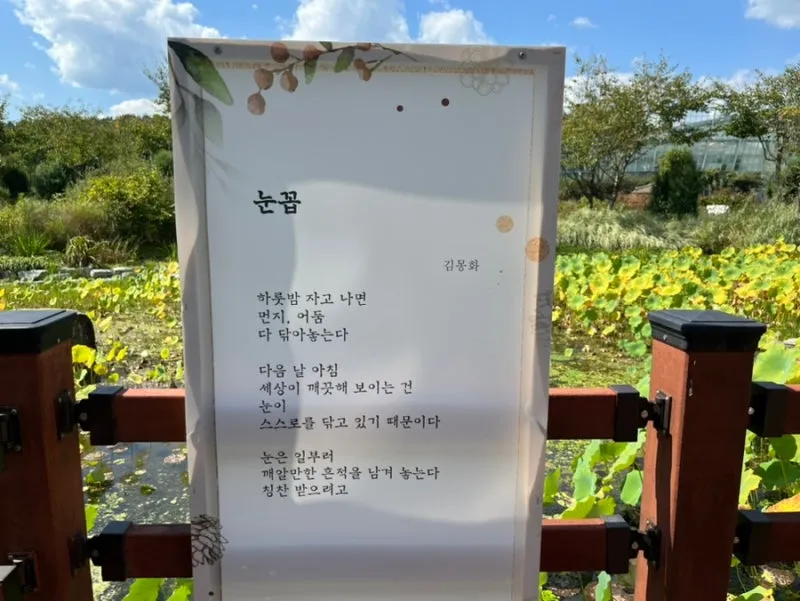 눈꼽
김몽화
하룻밤 자고 나면
먼지, 어둠
다 닦아놓는다
다음 날 아침
세상이 깨끗해 보이는 건
눈이
스스로를 닦고 있기 때문이다
눈은 일부러
깨알만한 흔적을 남겨 놓는다
칭찬 받으려고